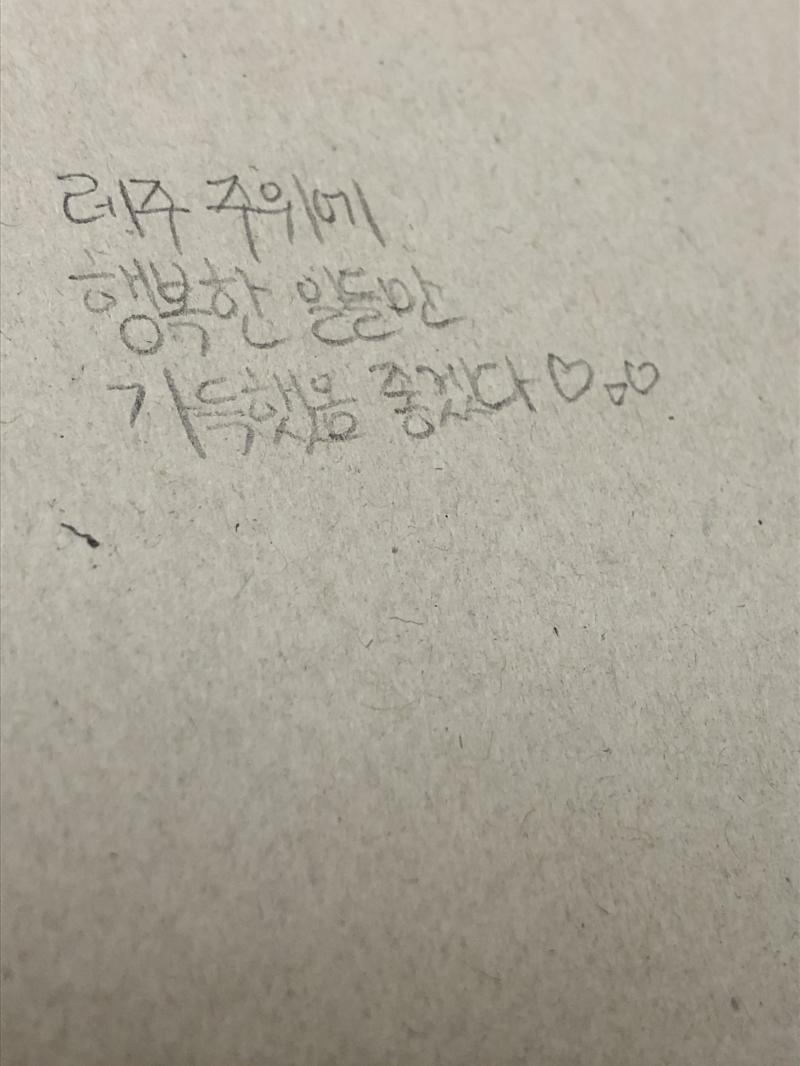 레주 주위에
행복한 일들만
가득했음 좋겠다 ♡.♡